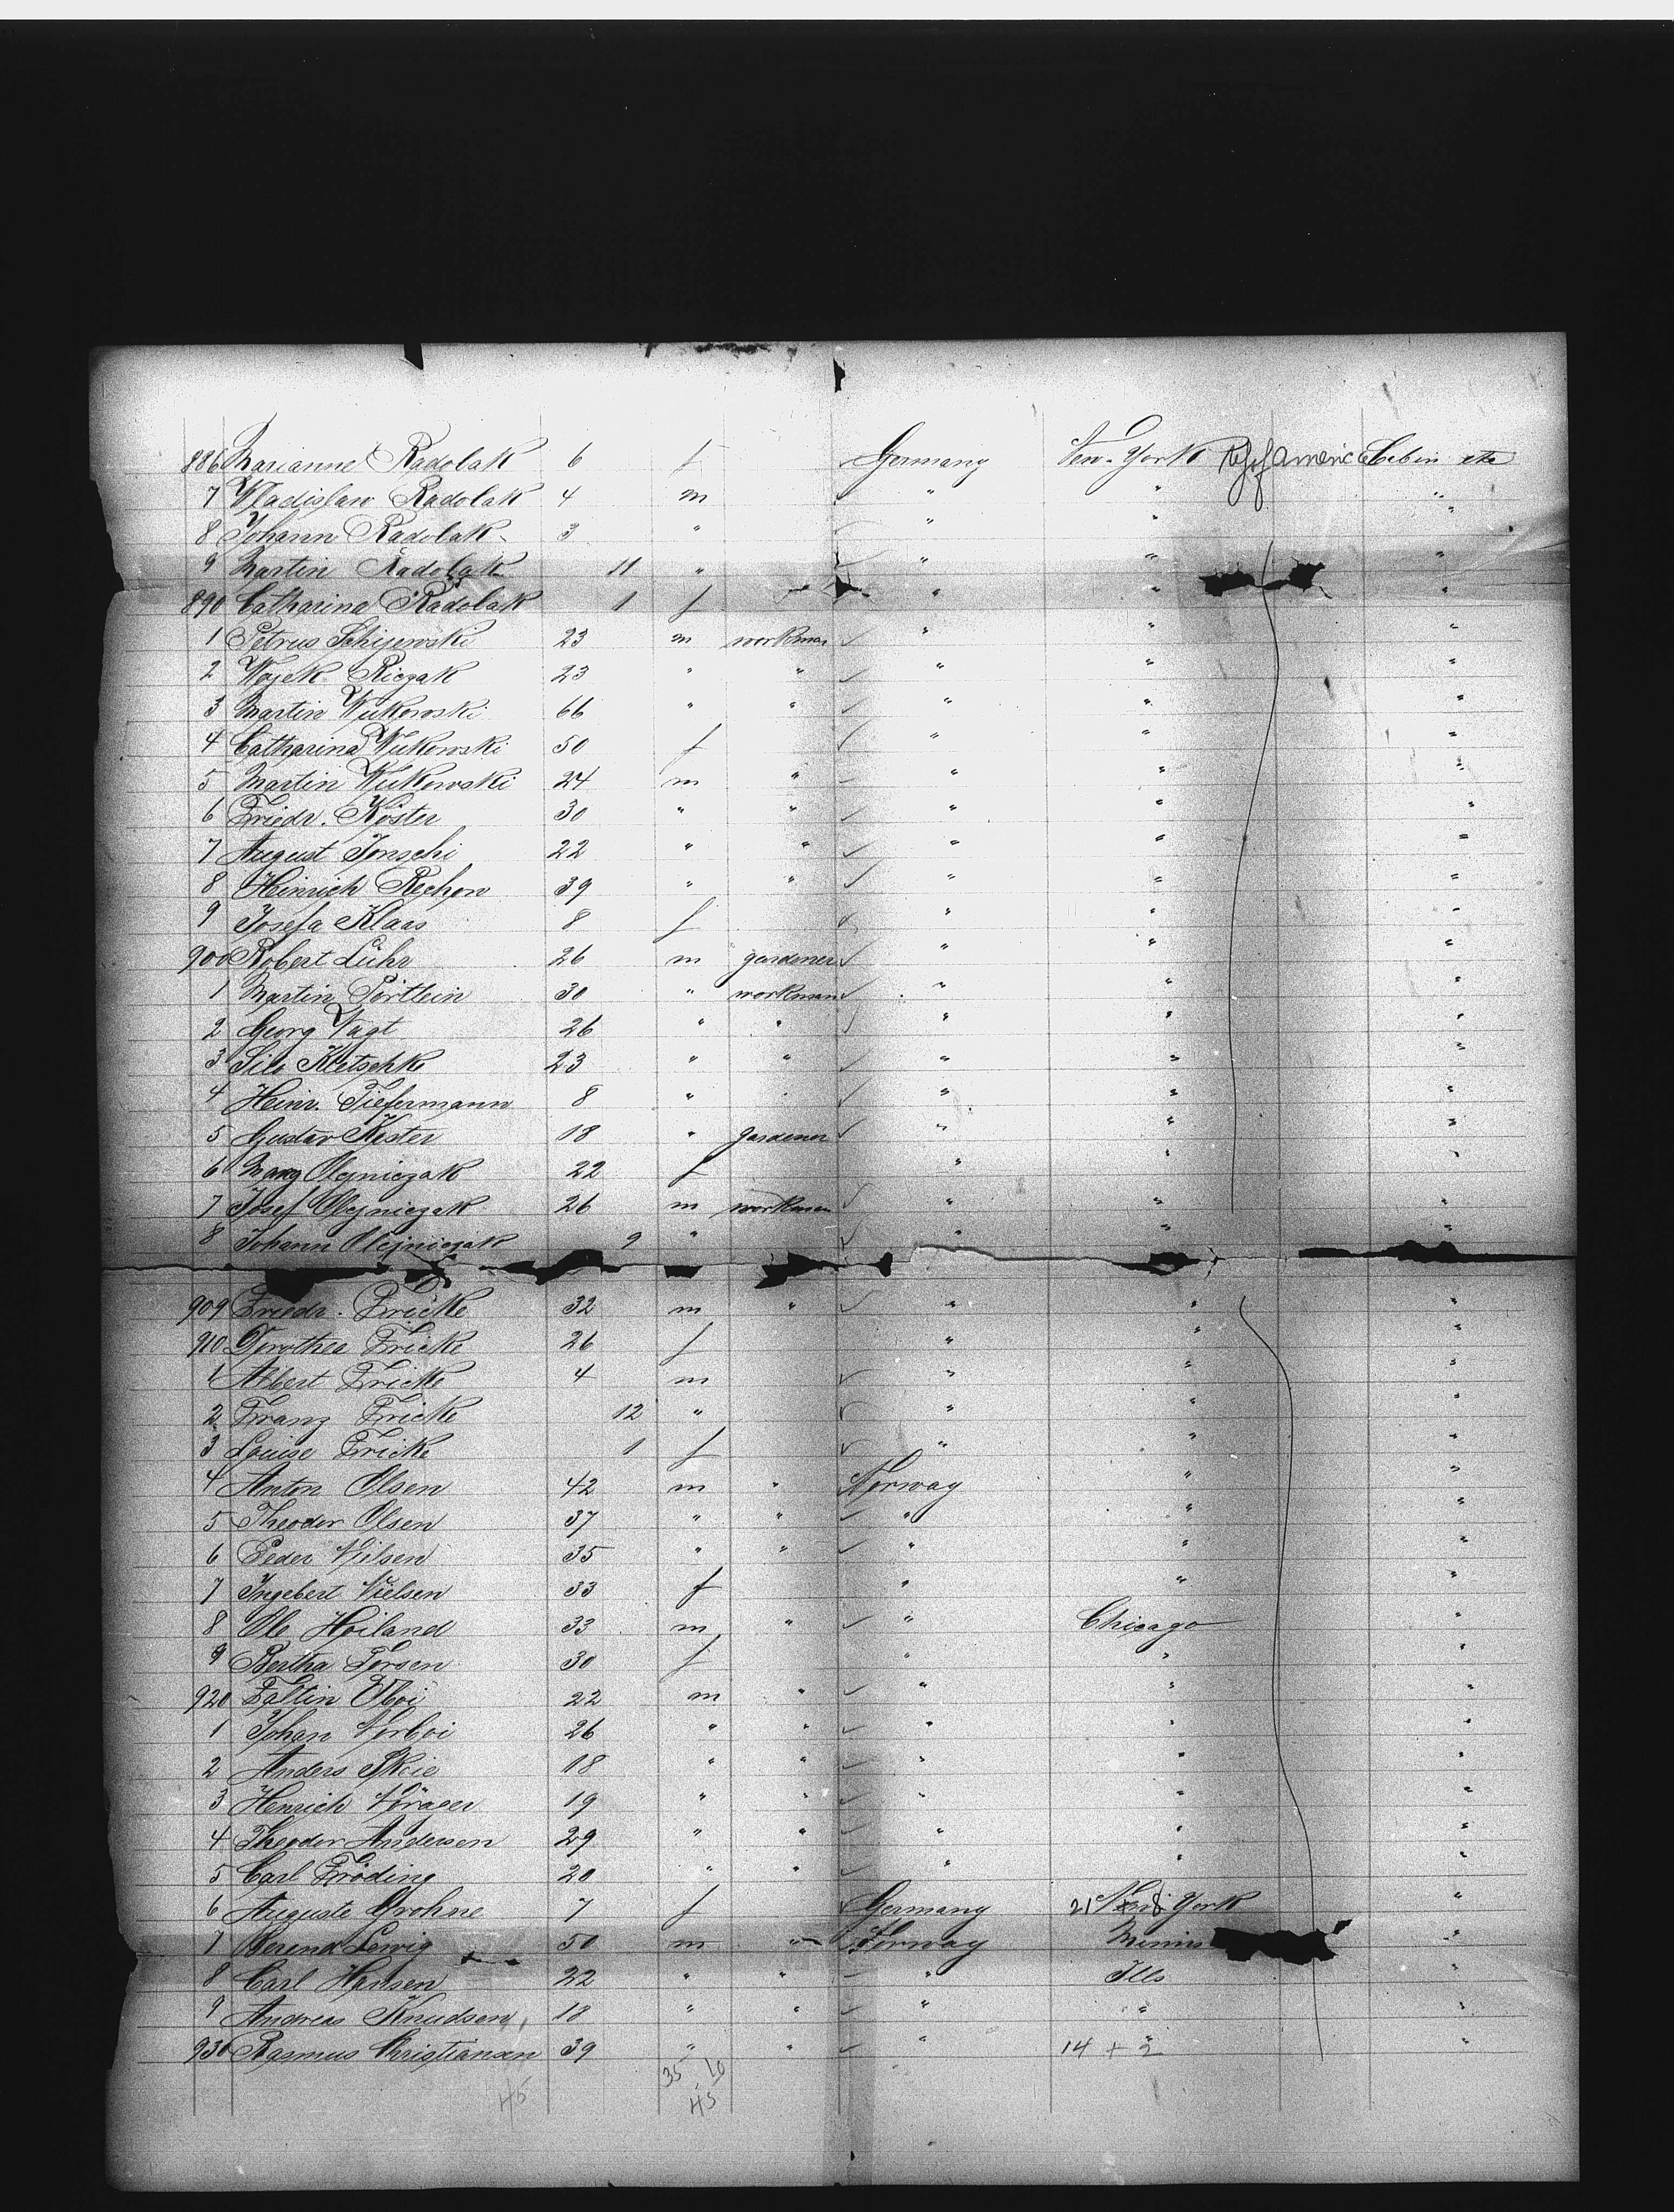 886 Marianne Radolak 6 f Germany New-York Rep of Americ Cabin etc
7 Wladislaw Radolak 4 m " " "
8 Johann Radolak 3 " " "
9 Martin Radolak 11 " " " "
890 Catharina Radolak 1 f " " "
1 Petrus Schijewski 23 m workman " " "
2 Wojek Riczak 23 " " " " "
3 Martin Wukowski 66 " " " " "
4 Catharina Wukowski 50 f " " "
5 Martin Wukowski 24 m " " " "
6 Friedr. Köster 30 " " " " "
7 August Jonschi 22 " " " " "
8 Heinrich Rechon 39 " " " " "
9 Josefa Klaas 8 f " " "
900 Robert Lühr 26 m gardener " " "
1 Martin Pörtlein 30 " workman " " "
2 Georg Vagt 26 " " " " "
3 Kletschke 23 " " " " "
4 Heinr. Tiefermann 8 " " " "
5 Gustav Kester 18 " gardener " " "
6 Marg Olejniczak 22 f " " "
7 Josef Olejniczak 26 m workman " " "
8 Johann Olejniczak 9 " " " "
909 Friedr. Fricke 32 m " " " "
910 Dorothee Fricke 26 f " " "
1 Albert Fricke 4 m " " "
2 Franz Fricke 12 " " " "
3 Louise Fricke 1 f " " "
4 Anton Olsen 42 m " Norway " "
5 Theodor Olsen 37 " " " " "
6 Peder Nilsen 35 " " " " "
7 Ingebert Nielsen 33 f " " "
8 Ole Hoiland 33 m " " Chicago "
9 Bertha Torsen 30 f " " "
920 Faltin 22 m " " " "
1 Johan Norboi 26 " " " " "
2 Anders Skoie 18 " " " " "
3 Henrich 19 " " " " "
4 Theodor Andersen 29 " " " " "
5 Carl Fröding 20 " " " " "
6 Auguste Grohne 7 f Germany 21 New York "
7 Berend Lewig 50 m " Norway Minn "
8 Carl Hansen 22 " " " Ills "
9 Andreas Knudsen 18 " " " " "
930 Rasmus Christiansen 39 " " " 14 + 2 "
35 10
45 45